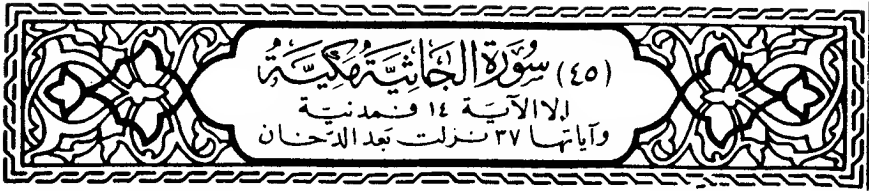 (٤٥) سُورَةُ الجَاثِيَةِ مَكِّيَّة
إلا الآية ١٤ فمدنية
وآياتها ٣٧ نزلت بعد الدخان